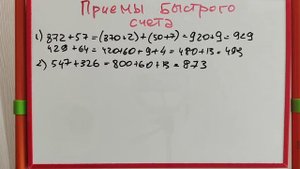 Приемы быстрого
счета
1) 872+57=(870+2)+(50+7)=920+9=929
429+64=420+60+9+4=480+13=493
2) 547+326=800+60+13=873